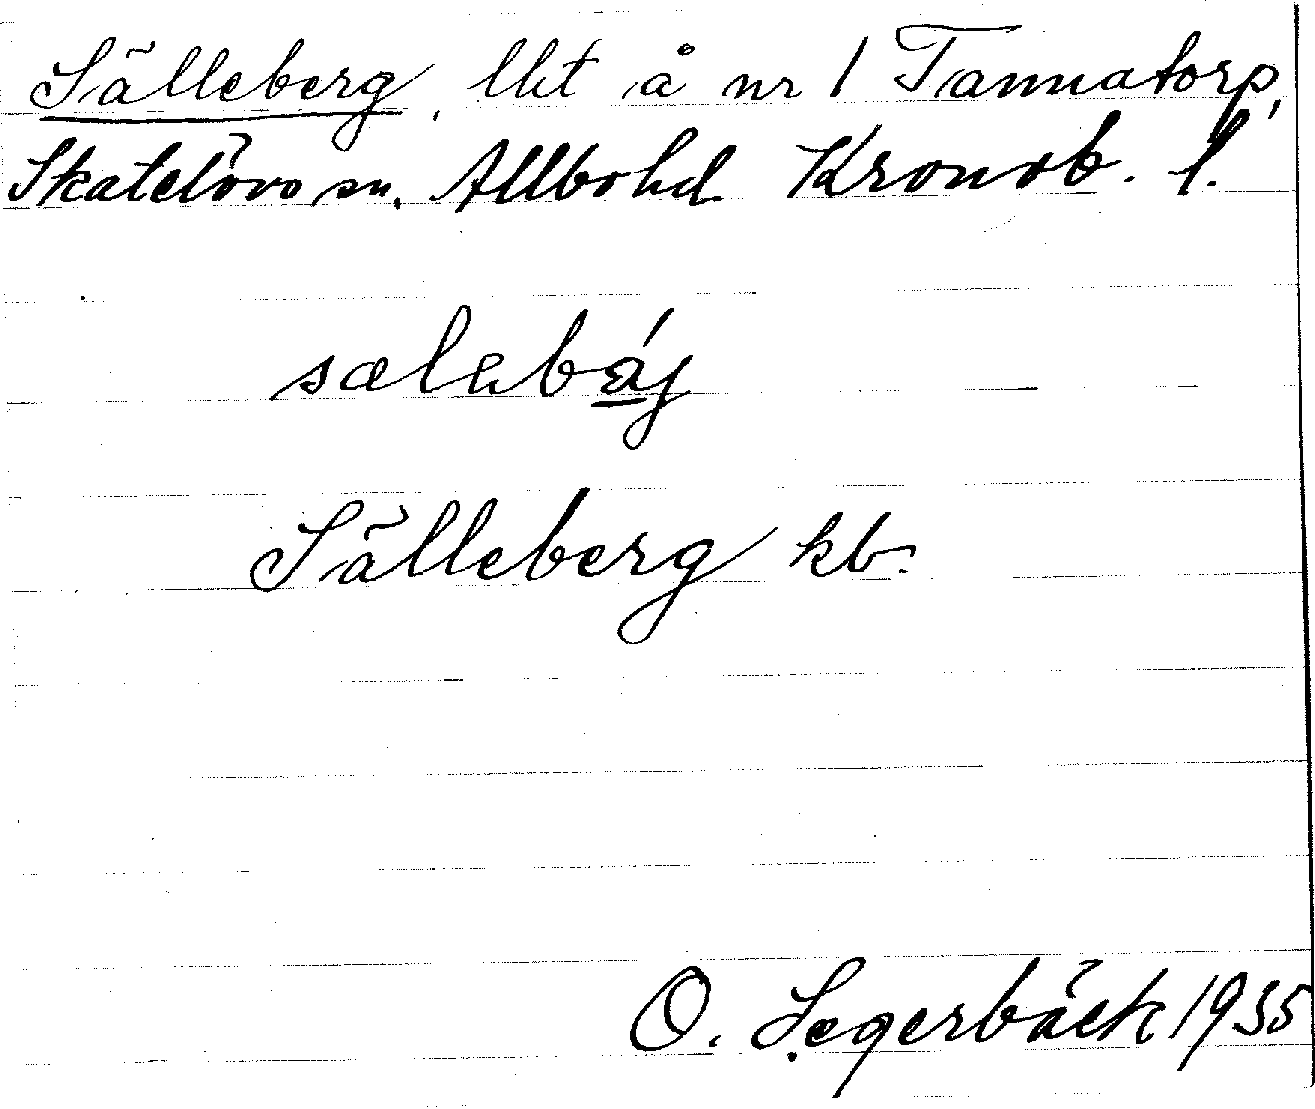 Sälleberg, lht å nr 1 Tannatorp,
Skatelövs sn. Allbo hd. Kronob. l.
Sälleberg kb.
O. Segerbäck 1935